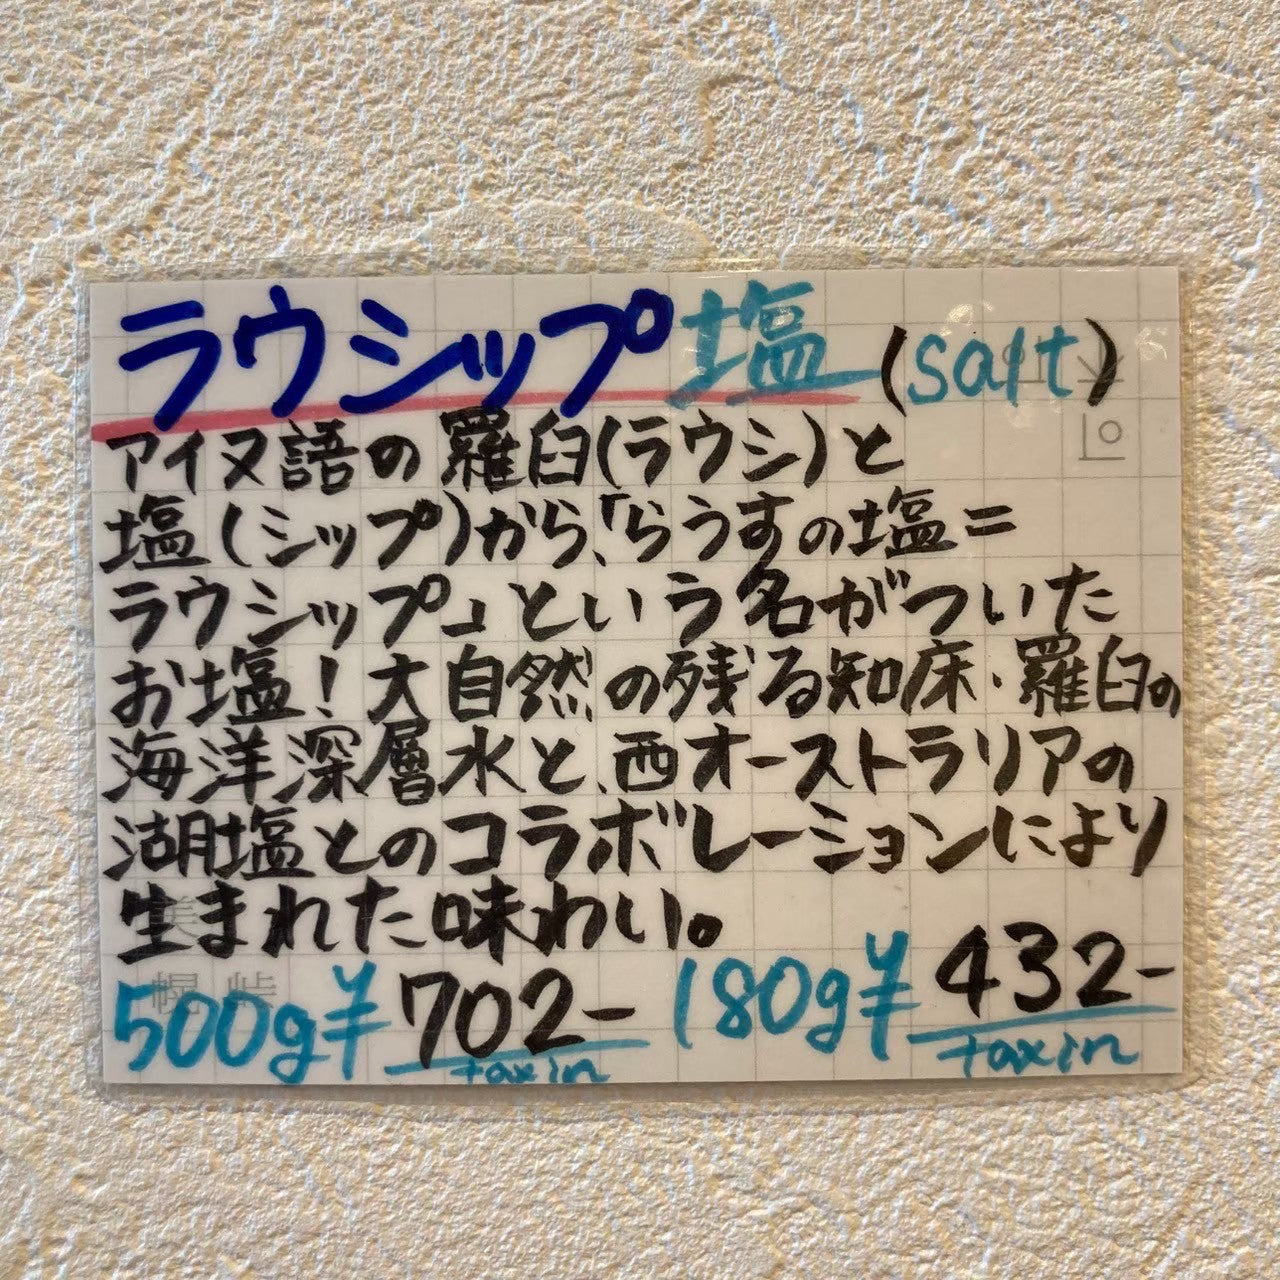 ラウシップ塩(salt)
アイヌ語の羅臼(ラウシ)と
塩(シップ)から、「らうすの塩=
ラウシップ」という名がついた
お塩!大自然の残る知床・羅臼の
海洋深層水と、西オーストラリアの
湖塩とのコラボレーションにより
生まれた味わい。
500g¥702- 180g¥432-
taxin taxin